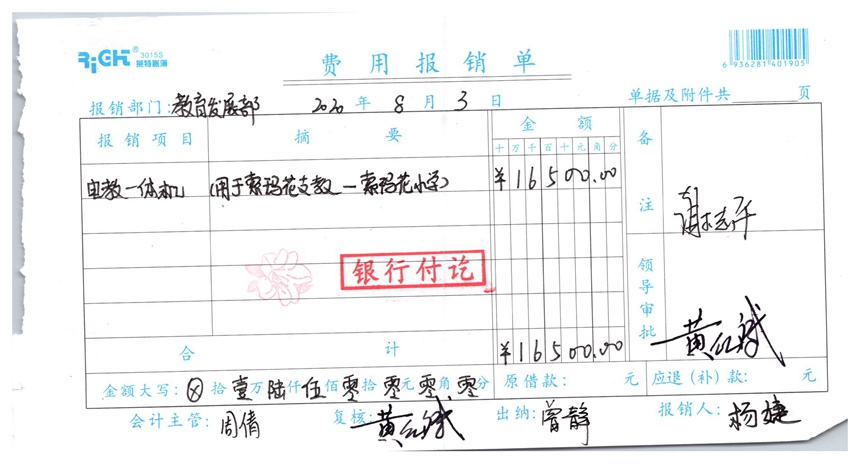 RiGHT® 3015S 莱特账簿
费用报销单
6 936281 401905
报销部门:教育发展部 2020年8月3日 单据及附件共 页
报销项目 摘要 金额 备注
十万千百十元角分
电教一体机 (用于索玛花支教—索玛花小学) ¥16500.00
银行付讫
领导审批
合计 ¥16500.00
金额大写:ⓧ拾壹万陆仟伍佰零拾零元零角零分 原借款: 元 应退(补)款: 元
会计主管:周倩 复核:黄红斌 出纳:曾静 报销人:杨婕